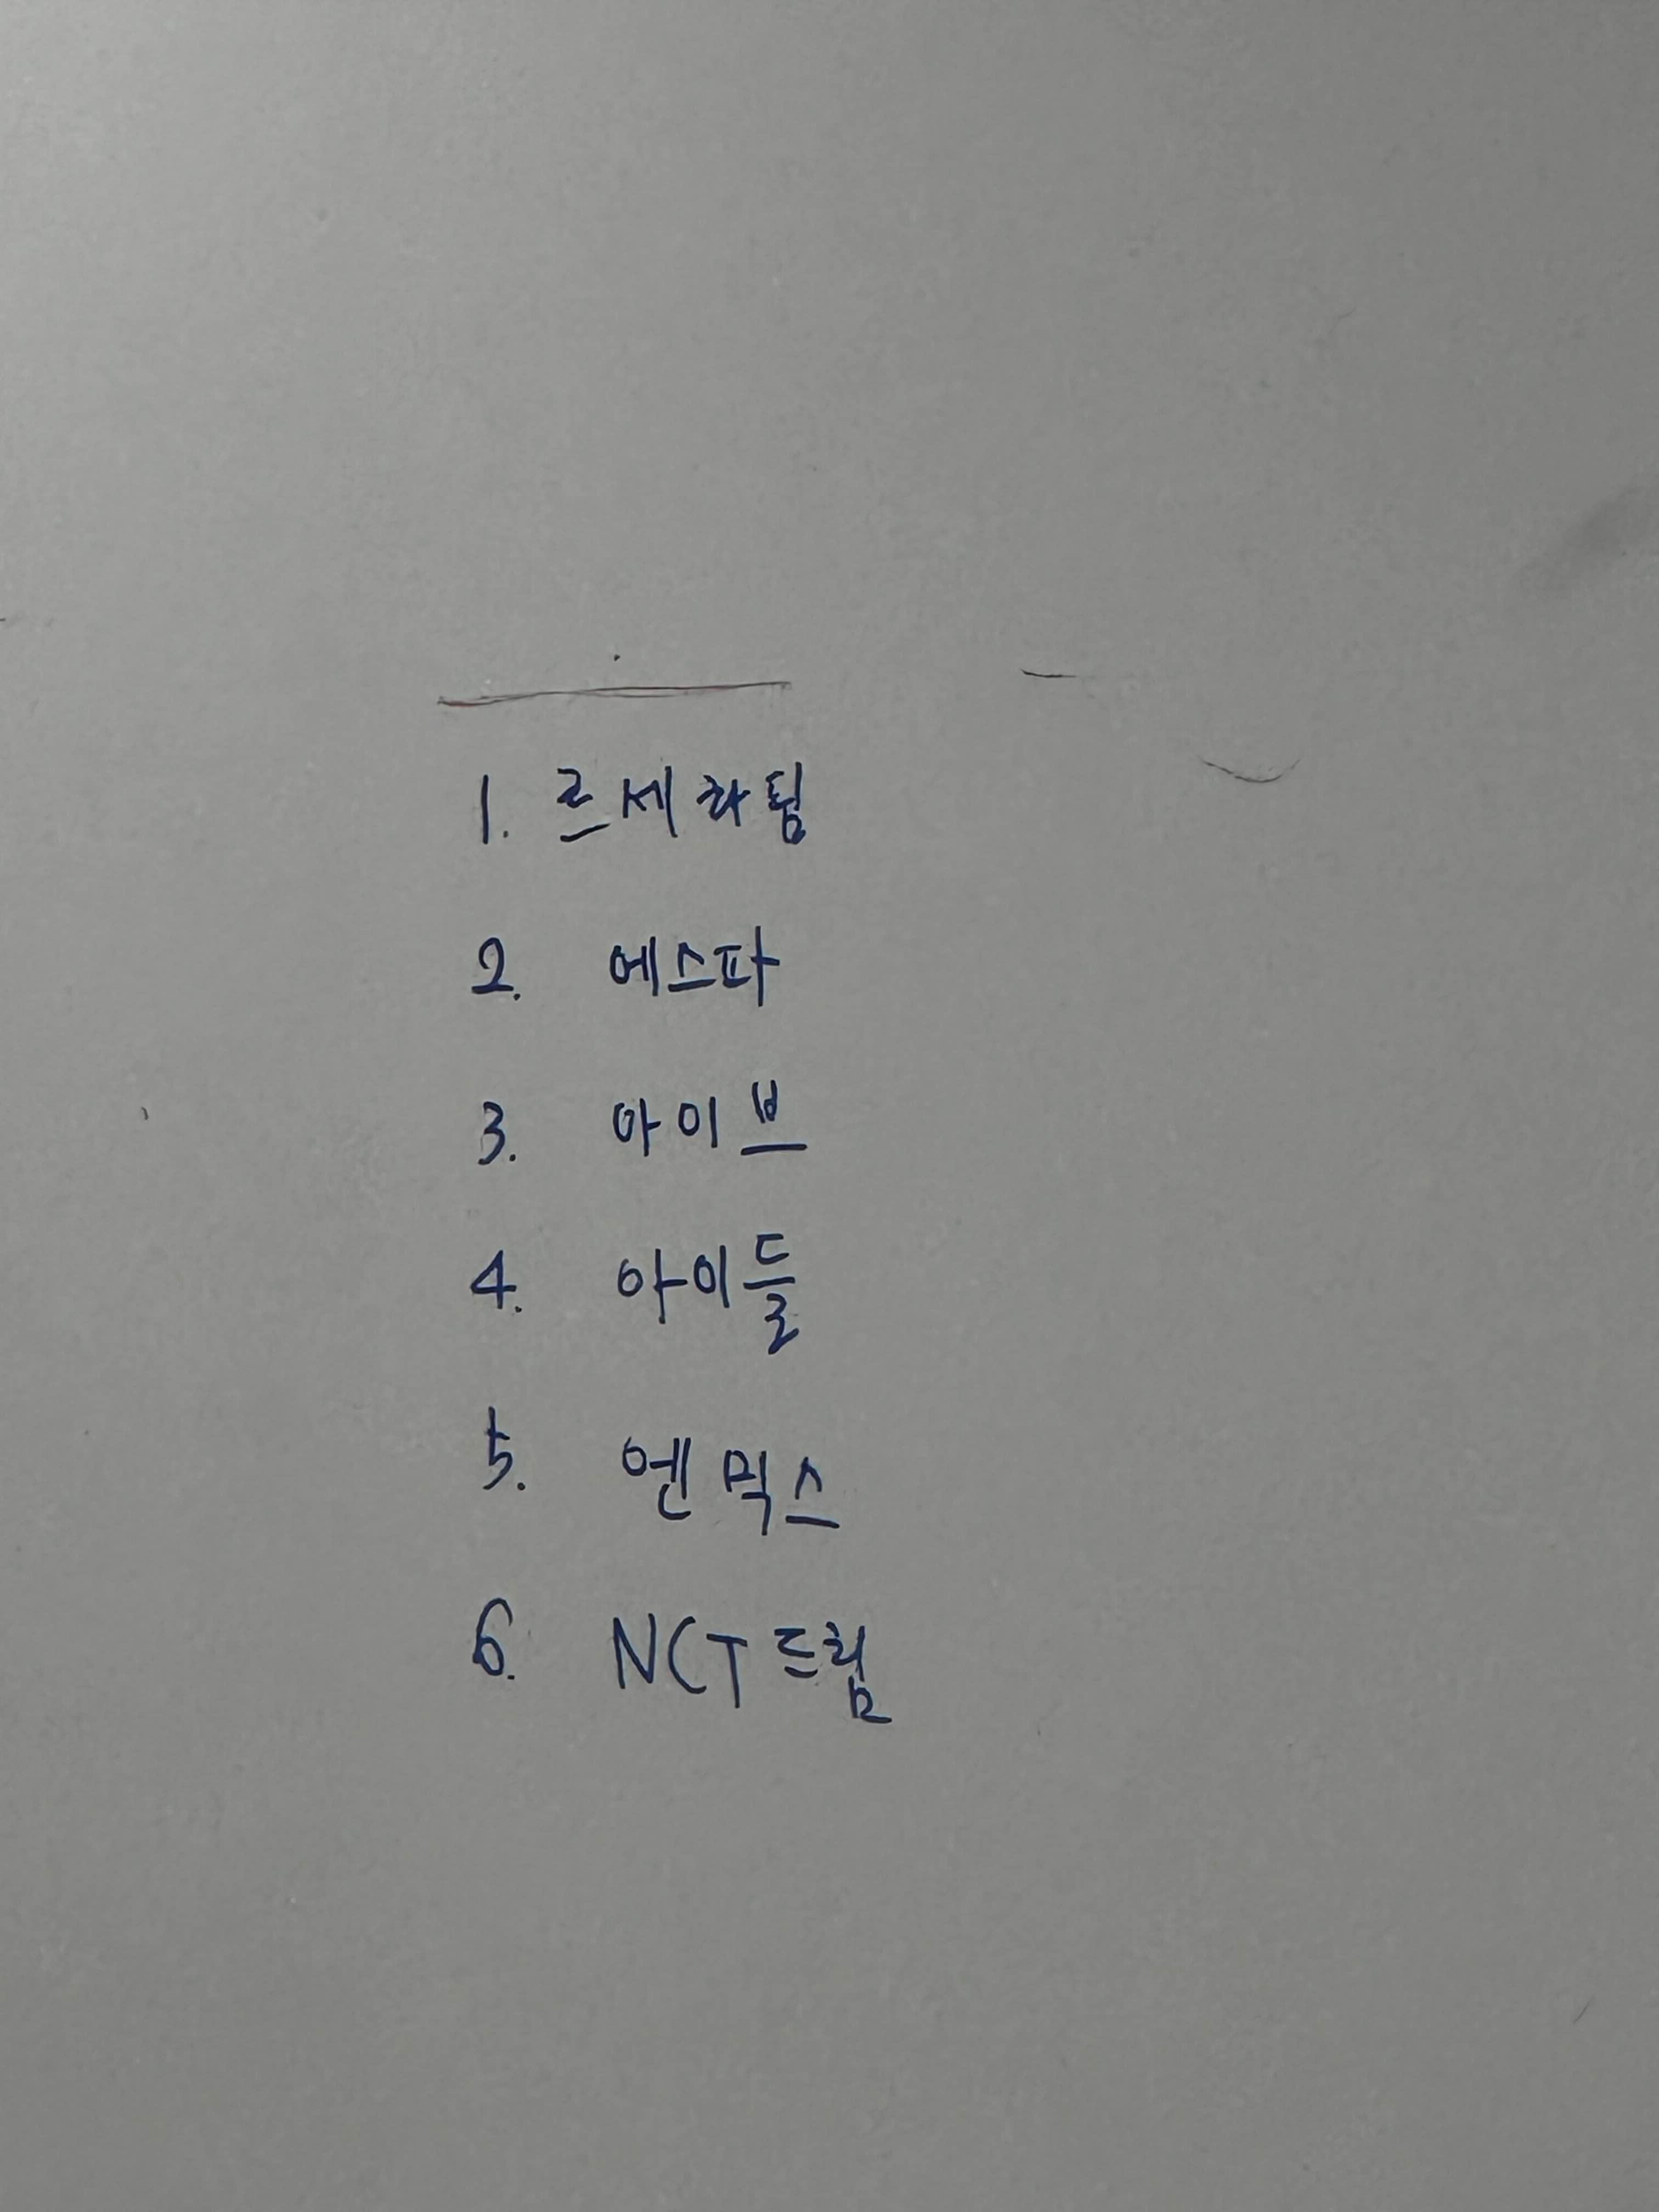 1. 르세라핌
2. 에스파
3. 아이브
4. 아이들
5. 엔믹스
6. NCT드림